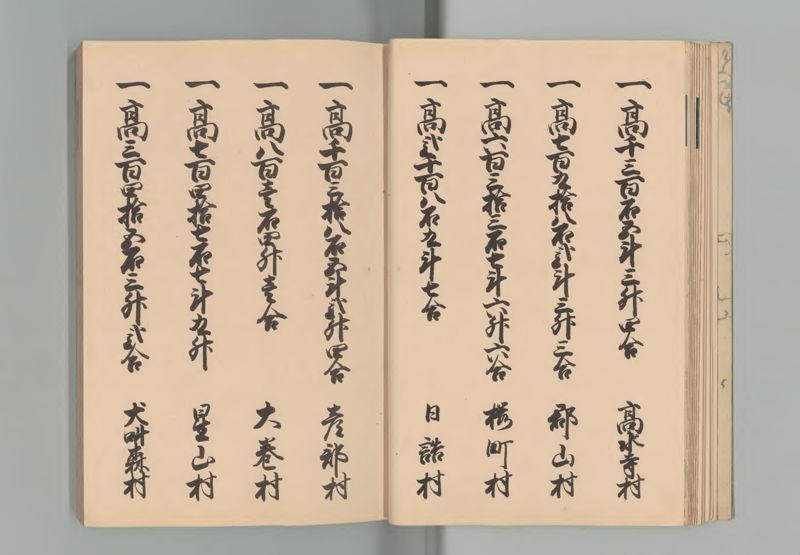 一高千三百石五斗三升四合 高水寺村
一高七百九拾八石弐斗三升三合 郡山村
一高八百三拾三石七斗六升六合 桜町村
一高弐千百八石九斗七合 日詰村
一高千百三拾八石五斗弐升四合 彦部村
一高八百壱石四升壱合 大巻村
一高七百四拾七石七斗九升 星山村
一高三百四拾五石三升弐合 犬吠森村